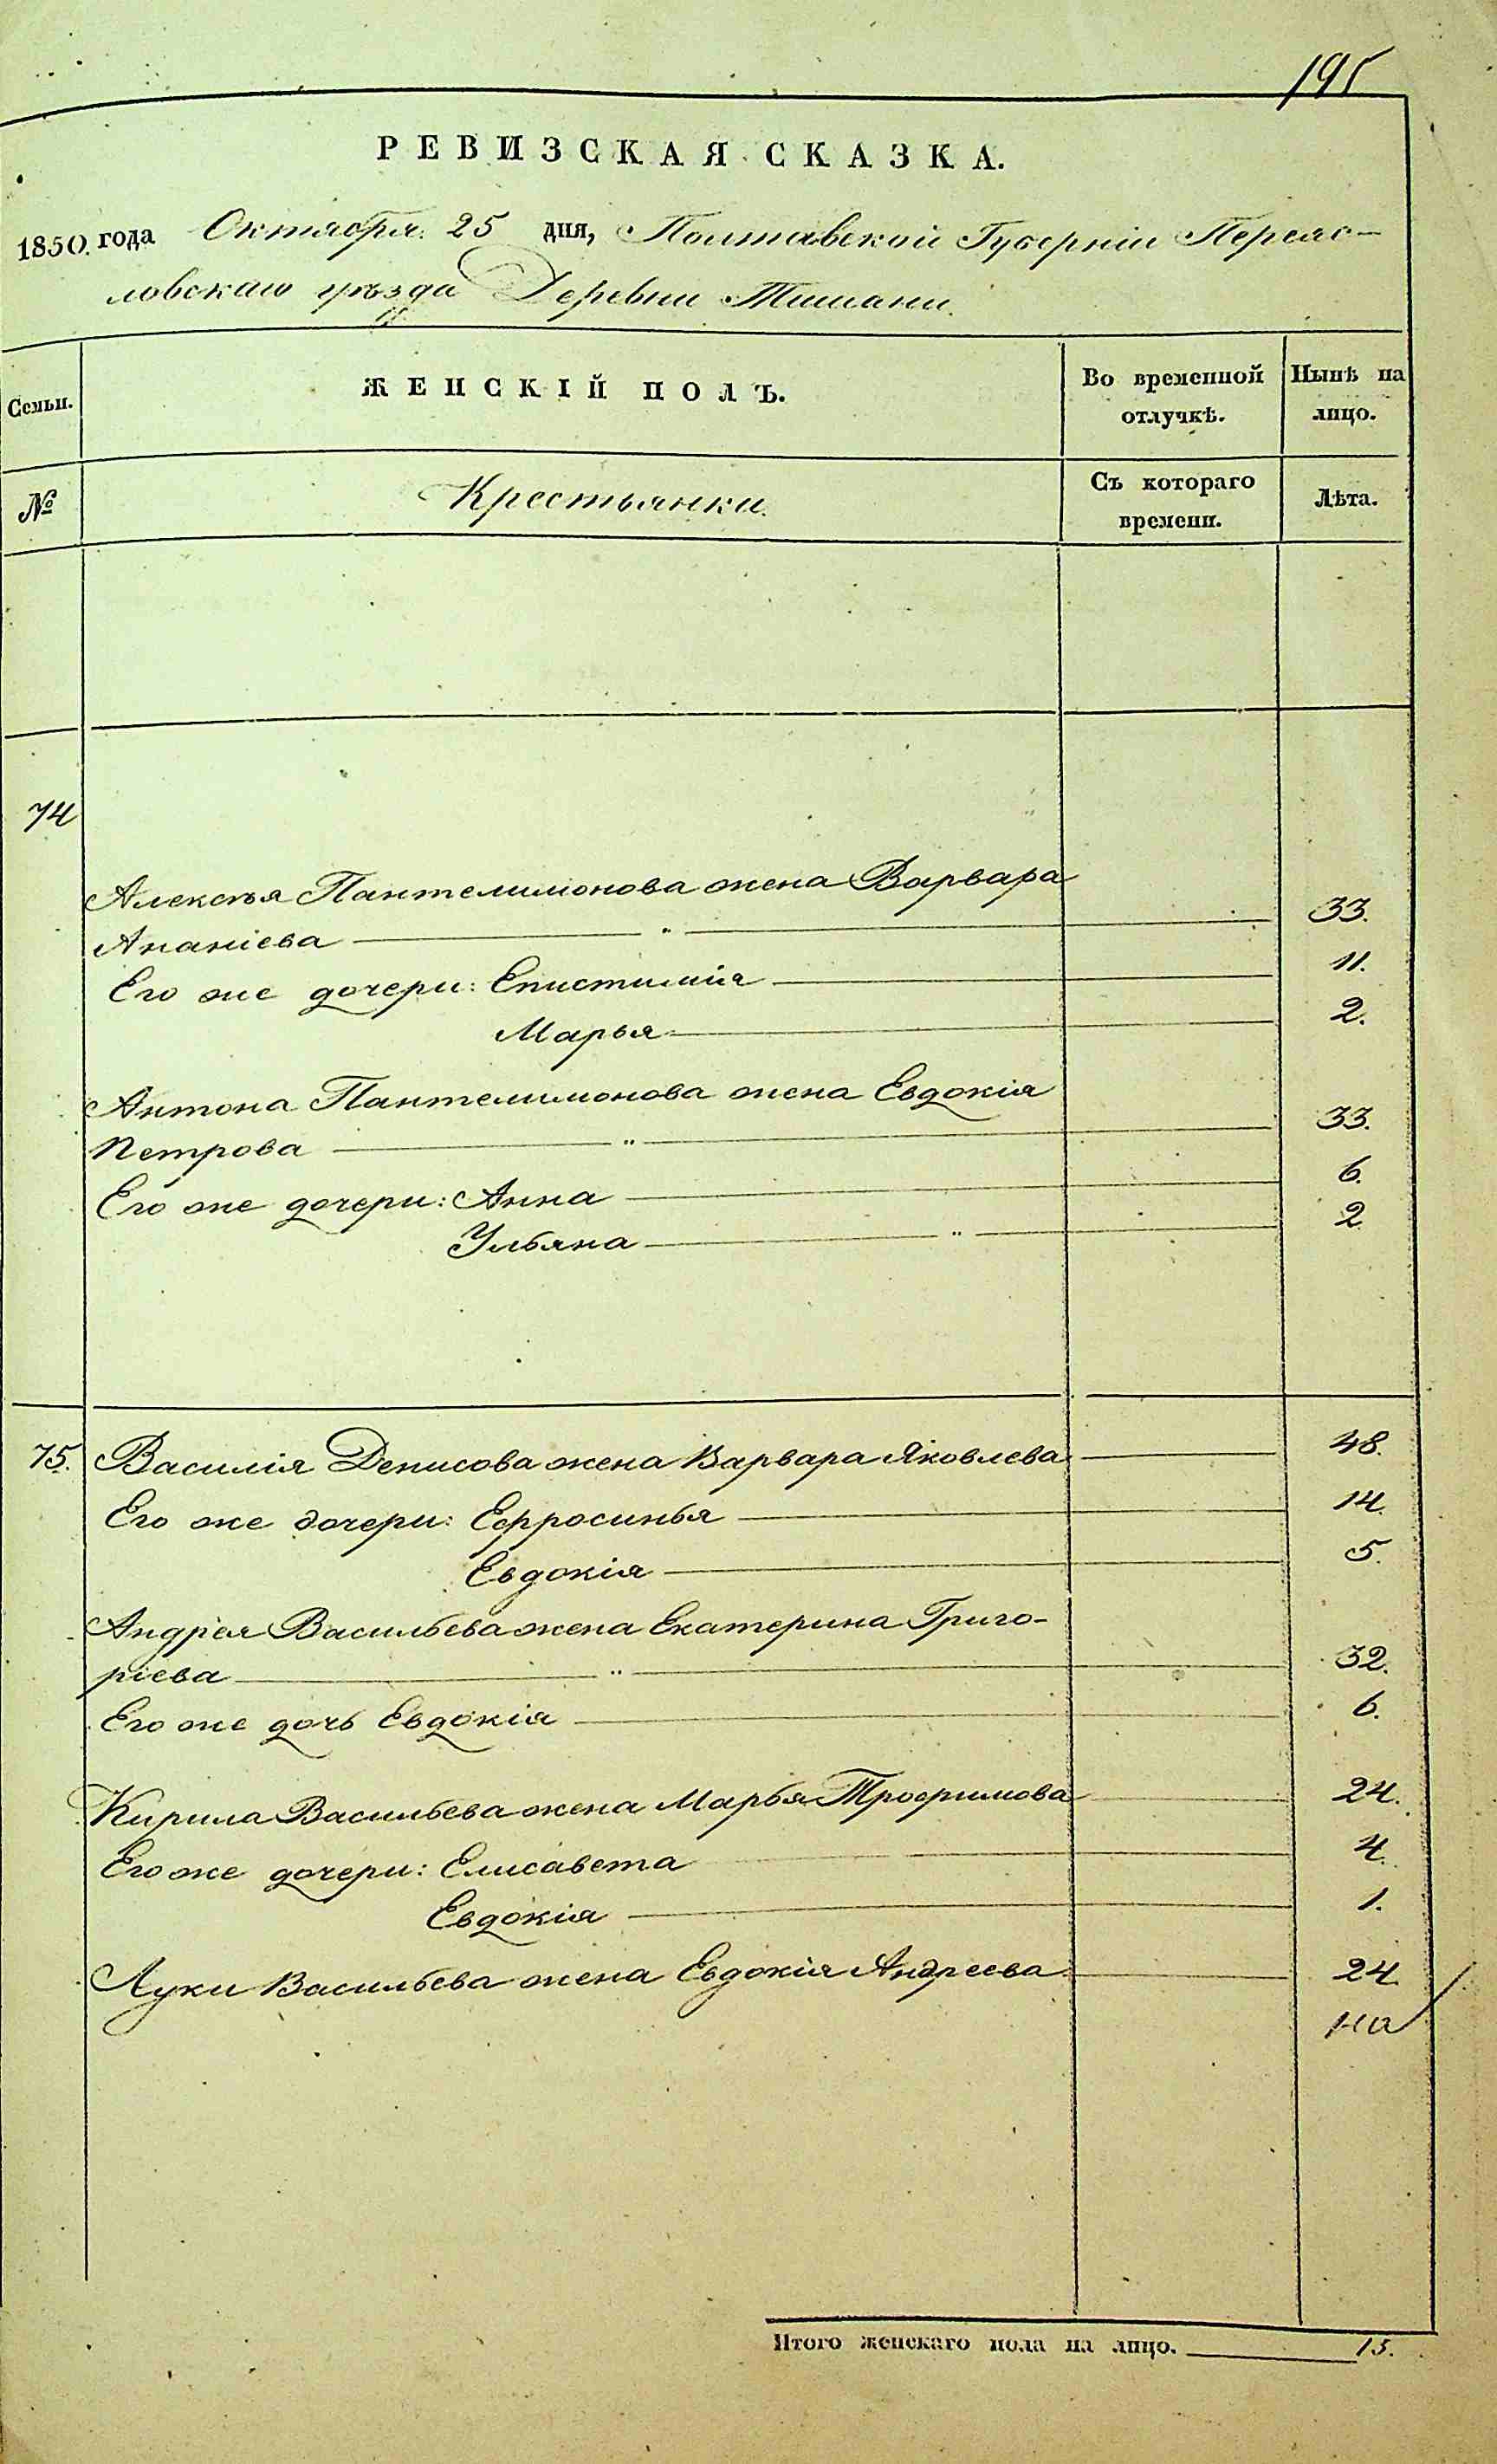 195
РЕВИЗСКАЯ СКАЗКА.
1850. года Октября. 25 дня, Полтавской Губерніи Переяс-
ловскаго уѣзда Деревни
Семьи. ЖЕНСКІЙ ПОЛЪ. Во временной отлучкѣ. Нынѣ на лицо.
№ Крестьянки. Съ котораго времени. Лѣта.
74
Алексѣя Пантелимонова жена Варвара
Ананіева — " — 33.
Его же дочери: Епистимія — 11.
Марья — 2.
Антона Пантелимонова жена Евдокія
Петрова — " — 33.
Его же дочери: Анна — 6.
Ульяна — " — 2
75. Василія Денисова жена Варвара Яковлева — 48.
Его же дочери: Ефросинья — 14.
Евдокія — 5.
Андрея Васильева жена Екатерина Григо-
ріева — " — 32.
Его же дочь Евдокія — 6.
Кирила Васильева жена Марья Трофимова — 24.
Его же дочери: Елисавета — 4.
Евдокія — 1.
Луки Васильева жена Евдокія Андреева — 24.
Итого женскаго пола на лицо. 15.